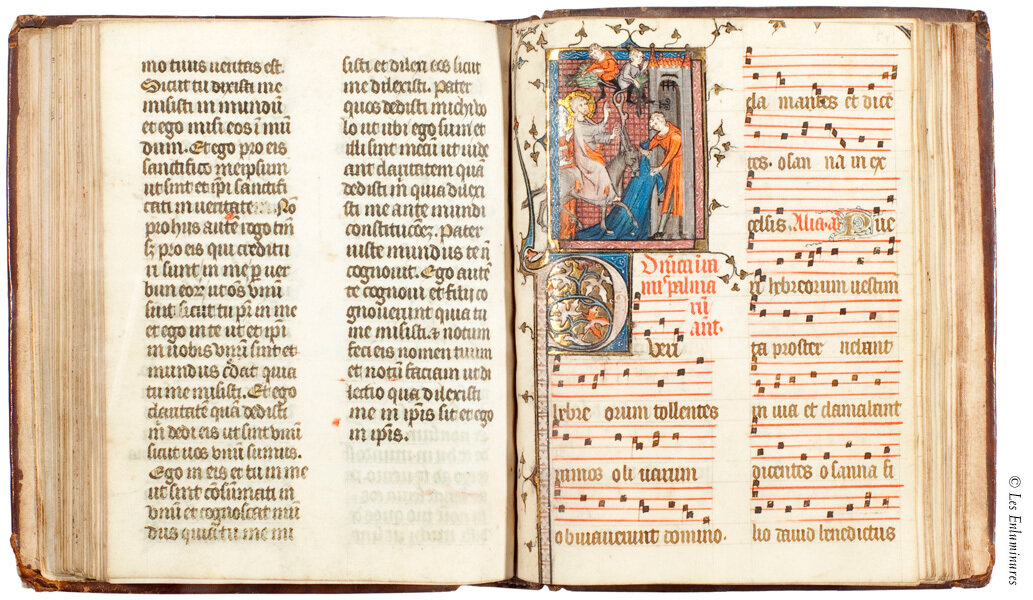 mo tuus ueritas est.
Sicut tu dixisti me
misisti in mundū
et ego misi eos ī mū
dum. Et ego pro eis
sanctifico meipsum
ut sint et ip̄i sanctifi
cati in ueritate. Nō
pro hus autē rogo tm̄
s; pro eis qui creditu
ri sunt in me p uer
bum eorꝝ ut os vnū
sint. sicut tu pr̄ in me
et ego in te ut et ip̄i
in nobis vnū sint et
mundus c̄dat quia
tu me misisti. Et ego
claritatē quā dedisti
m̄ dedi eis ut sint vnū
sicut nos vnū sumus.
Ego in eis et tu in me
ut sint cōsumati in
vnū et cognoscat mū
dus quia tu me mi
sisti et dilexi eos sicut
me dilexisti. Pater
quos dedisti michi vo
lo ut ubi ego sum et
illi sint mecū ut uide
ant claritatem quā
dedisti m̄ quia dilexi
sti me ante mundi
constitucōeꝫ. Pater
iuste mundus te nō
cognouit. Ego autē
te cognoui et filij co
gnouerunt quia tu
me misisti. et notum
feci eis nomen tuum
et notū faciam ut di
lectio qua dilexisti
me in ip̄is sit et ego
in ip̄is.
Dn̄ica in ra
mis palma
rū
ant.
Pueri
hebre orum tollentes
ramos oli uarum
obuiauerunt domino.
cla mantes et dicē
tes. osan na in ex
celsis. Alia. a. Pue
ri hebreorum uestim
ta proster nebant
in uia et clamabant
dicentes osanna fi
lio dauid benedictus
© Les Enluminures